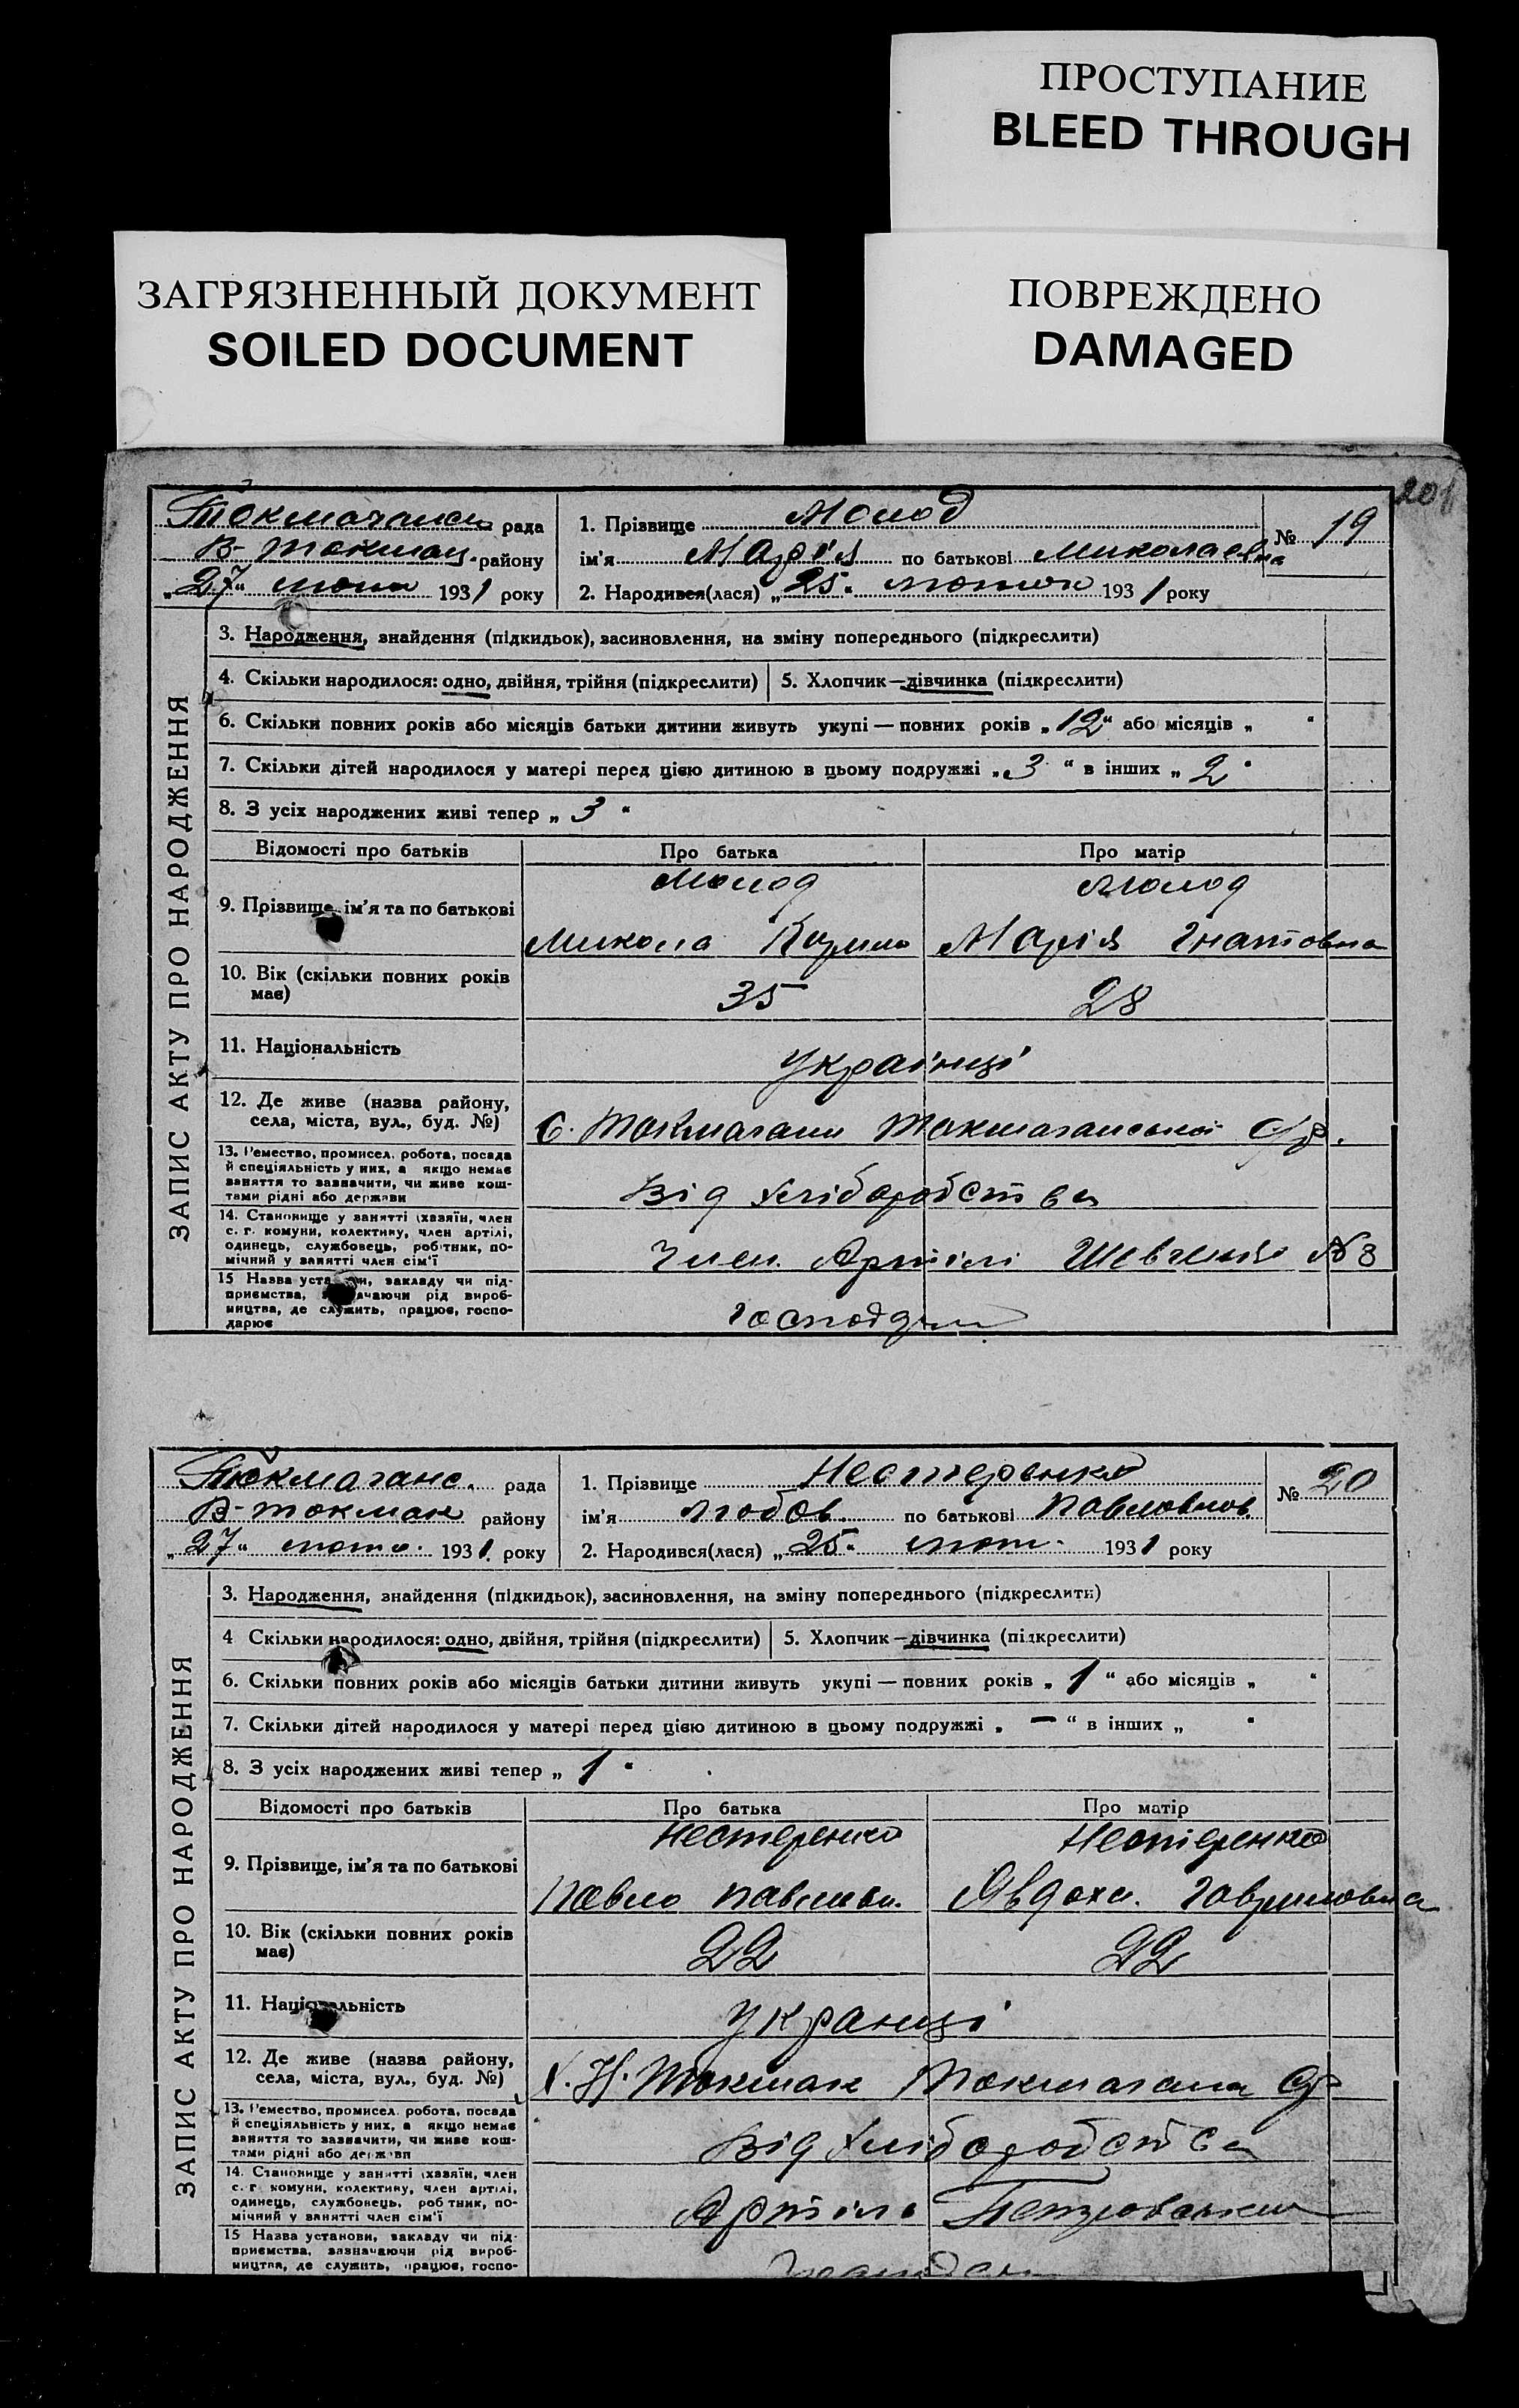 ПРОСТУПАНИЕ
BLEED THROUGH
ЗАГРЯЗНЕННЫЙ ДОКУМЕНТ
SOILED DOCUMENT
ПОВРЕЖДЕНО
DAMAGED
201
рада
В-Токмац. району
„27“ 1931 року
1. Прізвище Молод
ім'я Марія по батькові Миколаевна
2. Народився(лася) „25“ лютого 1931 року
№ 19
ЗАПИС АКТУ ПРО НАРОДЖЕННЯ
3. Народження, знайдення (підкидьок), засиновлення, на зміну попереднього (підкреслити)
4. Скільки народилося: одно, двійня, трійня (підкреслити) 5. Хлопчик—дівчинка (підкреслити)
6. Скільки повних років або місяців батьки дитини живуть укупі — повних років „12“ або місяців „ “
7. Скільки дітей народилося у матері перед цією дитиною в цьому подружжі „3“ в інших „2“
8. З усіх народжених живі тепер „3“
Відомості про батьків Про батька Про матір
9. Прізвище, ім'я та по батькові
Молод Молод
Микола Марія Гнатовна
10. Вік (скільки повних років має)
35 28
11. Національність
українці
12. Де живе (назва району, села, міста, вул., буд. №)
С. Токмачани Токмачанської с/р.
13. Ремество, промисел, робота, посада
й спеціяльність у них, а якщо немає
заняття то зазначити, чи живе кош-
тами рідні або держави
Від хліборобства
14. Становище у занятті (хазяїн, член
с. г. комуни, колективу, член артілі,
одинець, службовець, робітник, по-
мічний у занятті член сім'ї
Член Артілі Шевченко №8
15 Назва установи, закладу чи під-
приємства, зазначаючи рід вироб-
ництва, де служить, працює, госпо-
дарює
Токмачанс. рада
В-Токмак району
„27“ люто. 1931 року
1. Прізвище Нестеренко
ім'я Любов. по батькові Павловнов.
2. Народився(лася) „25“ лют. 1931 року
№ 20
ЗАПИС АКТУ ПРО НАРОДЖЕННЯ
3. Народження, знайдення (підкидьок), засиновлення, на зміну попереднього (підкреслити)
4 Скільки народилося: одно, двійня, трійня (підкреслити) 5. Хлопчик—дівчинка (підкреслити)
6. Скільки повних років або місяців батьки дитини живуть укупі — повних років „1“ або місяців „ “
7. Скільки дітей народилося у матері перед цією дитиною в цьому подружжі „—“ в інших „ “
8. З усіх народжених живі тепер „1“
Відомості про батьків Про батька Про матір
9. Прізвище, ім'я та по батькові
Нестеренко Нестеренко
Павло Павлови. Явдоха. Гавриловна
10. Вік (скільки повних років має)
22 22
11. Національність
украинці
12. Де живе (назва району, села, міста, вул., буд. №)
Х. Н. Токмак Токмачани
13. Ремество, промисел, робота, посада
й спеціяльність у них, а якщо немає
заняття то зазначити, чи живе кош-
тами рідні або держави
Від хліборобства
14. Становище у занятті (хазяїн, член
с. г. комуни, колективу, член артілі,
одинець, службовець, робітник, по-
мічний у занятті член сім'ї
Артіль
15 Назва установи, закладу чи під-
приємства, зазначаючи рід вироб-
ництва, де служить, працює, госпо-